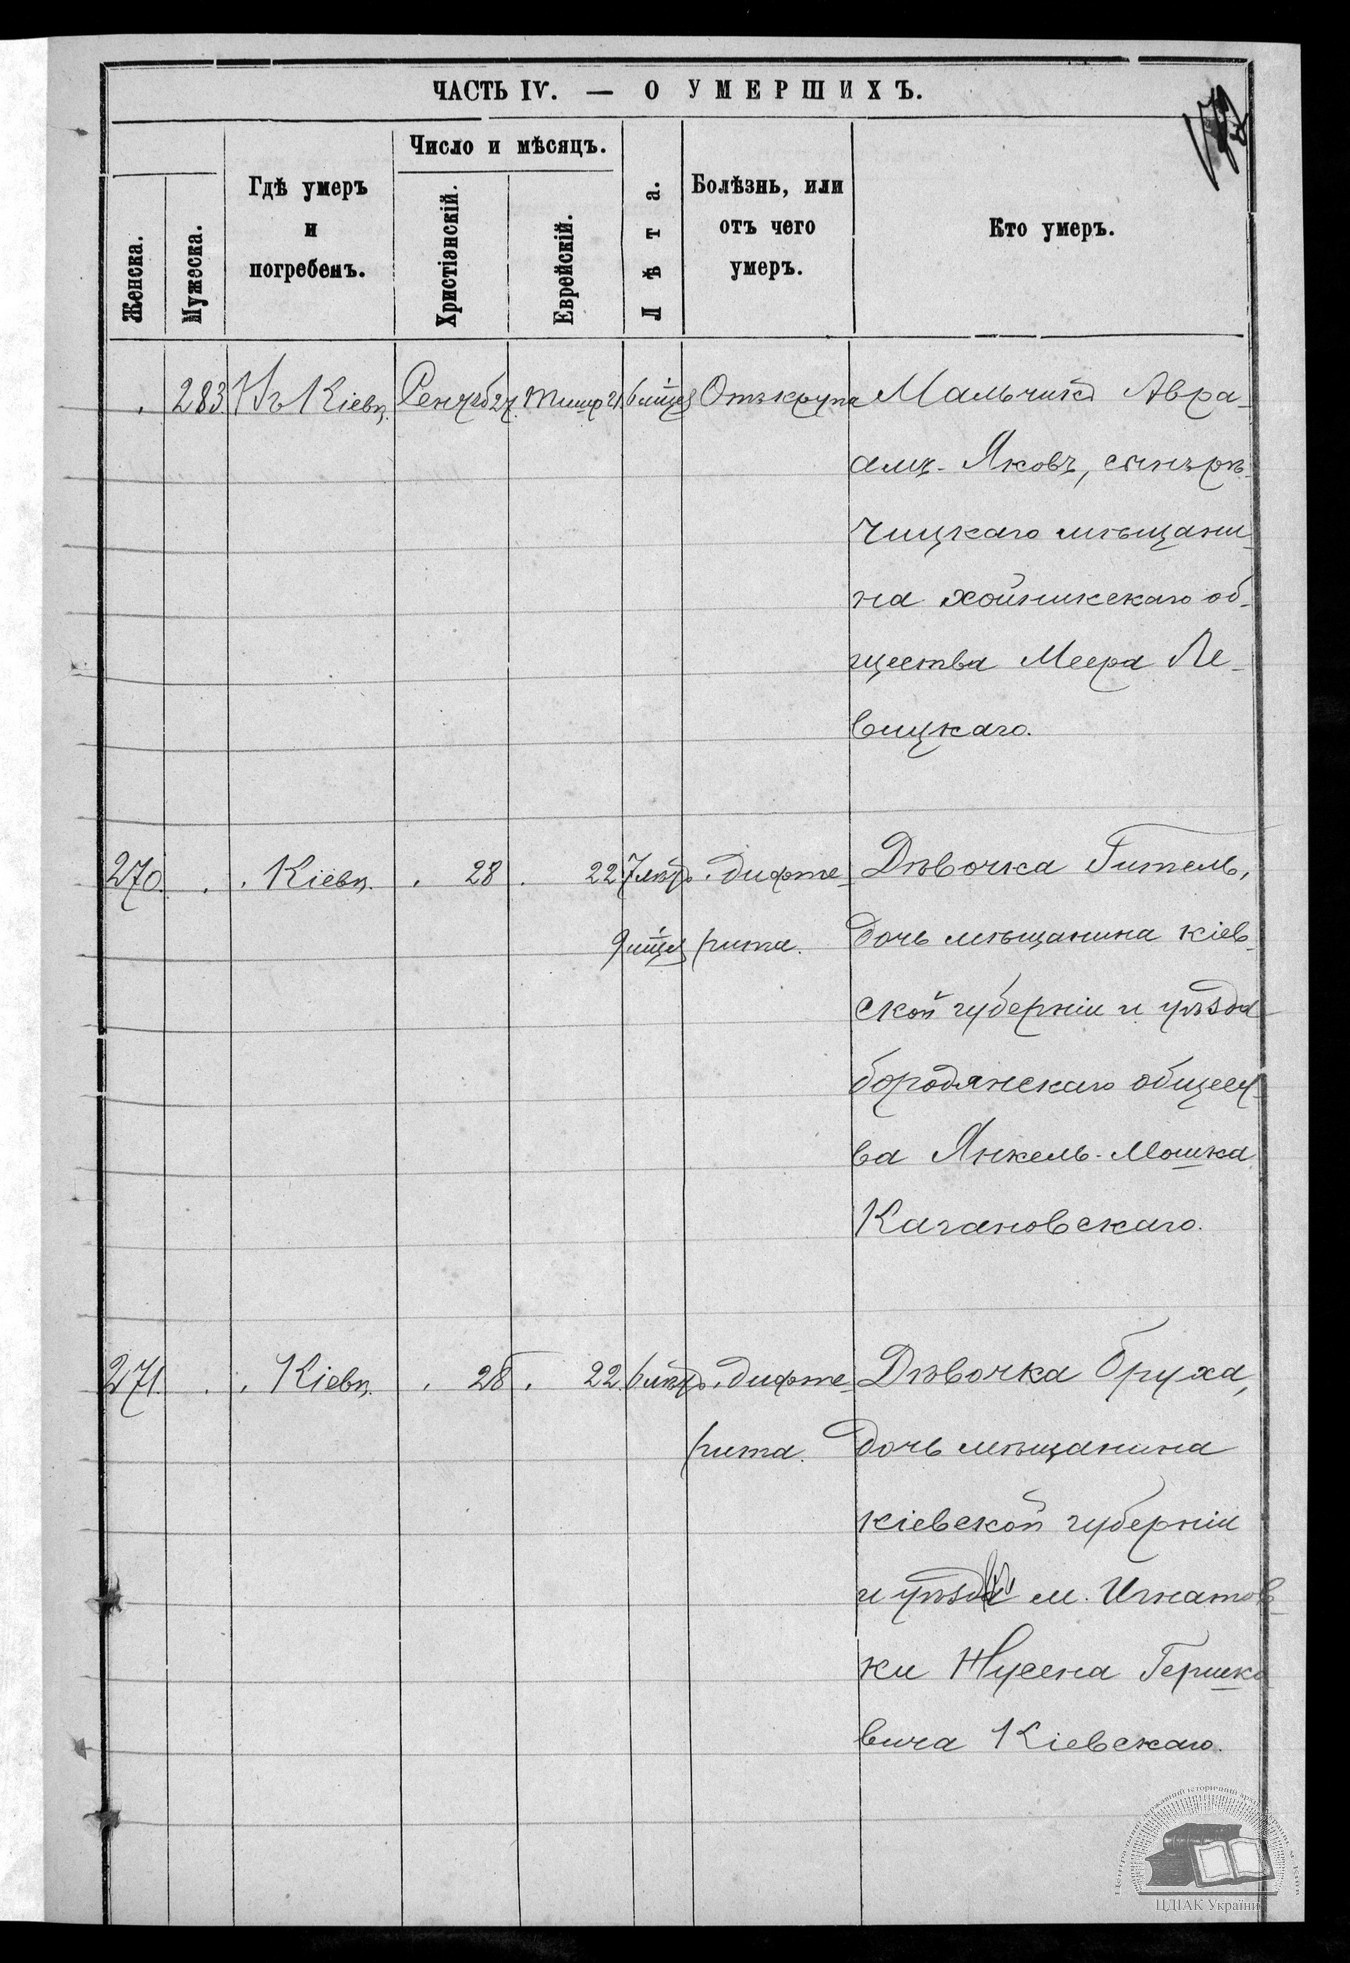 ЧАСТЬ IV. — О УМЕРШИХЪ.
Женска.
Мужеска.
Гдѣ умеръ
и
погребенъ.
Число и мѣсяцъ.
Христіанскій.
Еврейскій.
Лѣта.
Болѣзнь, или
отъ чего
умеръ.
Кто умеръ.
283 Въ Кіевѣ Сентяб 27. Тишр 21. 6 мѣся Отъ крупа Мальчикъ Авра-
амъ-Яковъ, сынъ рѣ-
чицкаго мѣщани-
на хойникскаго об-
щества Меера Ле-
вицкаго.
270. Кіевѣ. 28. 22 7 лѣтъ дифте- Дѣвочка Гитель,
9 мѣся рита. дочь мѣщанина кіев-
ской губерніи и уѣзда
бородянскаго общест-
ва Янкель-Мошка
Кагановскаго.
271. Кіевѣ. 28. 22. 6 лѣтъ дифте- Дѣвочка Бруха,
рита. дочь мѣщанина
кіевской губерніи
и уѣзда м. Игнатов-
ки Нусена Гершко
вича Кіевскаго.
ЦДІАК України